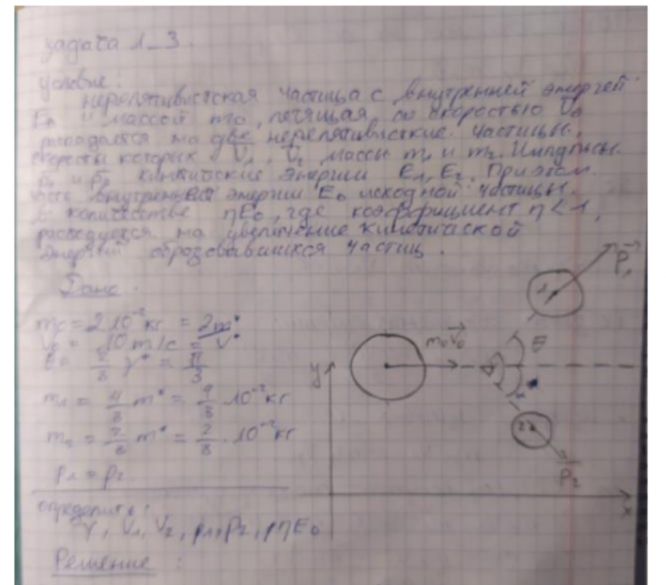 задача 1_3.
условие:
нерелятивистская частица с внутренней энергией
E₀ и массой m₀, летящая со скоростью V₀
распадается на две нерелятивистские частицы,
скорости которых V₁, V₂, массы m₁ и m₂. Импульсы
p₁ и p₂ кинетические энергии E₁, E₂. При этом
часть внутренней энергии E₀ исходной частицы
в количестве ηE₀, где коэффициент η < 1,
расходуется на увеличение кинетической
энергии образовавшихся частиц.
Дано.
= 2·10⁻² кг = 2m*
V₀ = 10 м/с = V*
= π/3
m₁ = m* = · 10⁻² кг
m₂ = 2/3 m* = 2/3 · 10⁻² кг
p₁ = p₂
определить:
γ, V₁, V₂, p₁, p₂, ηE₀
Решение :
p₁
1
m₀V₀
θ
y
2
p₂
x